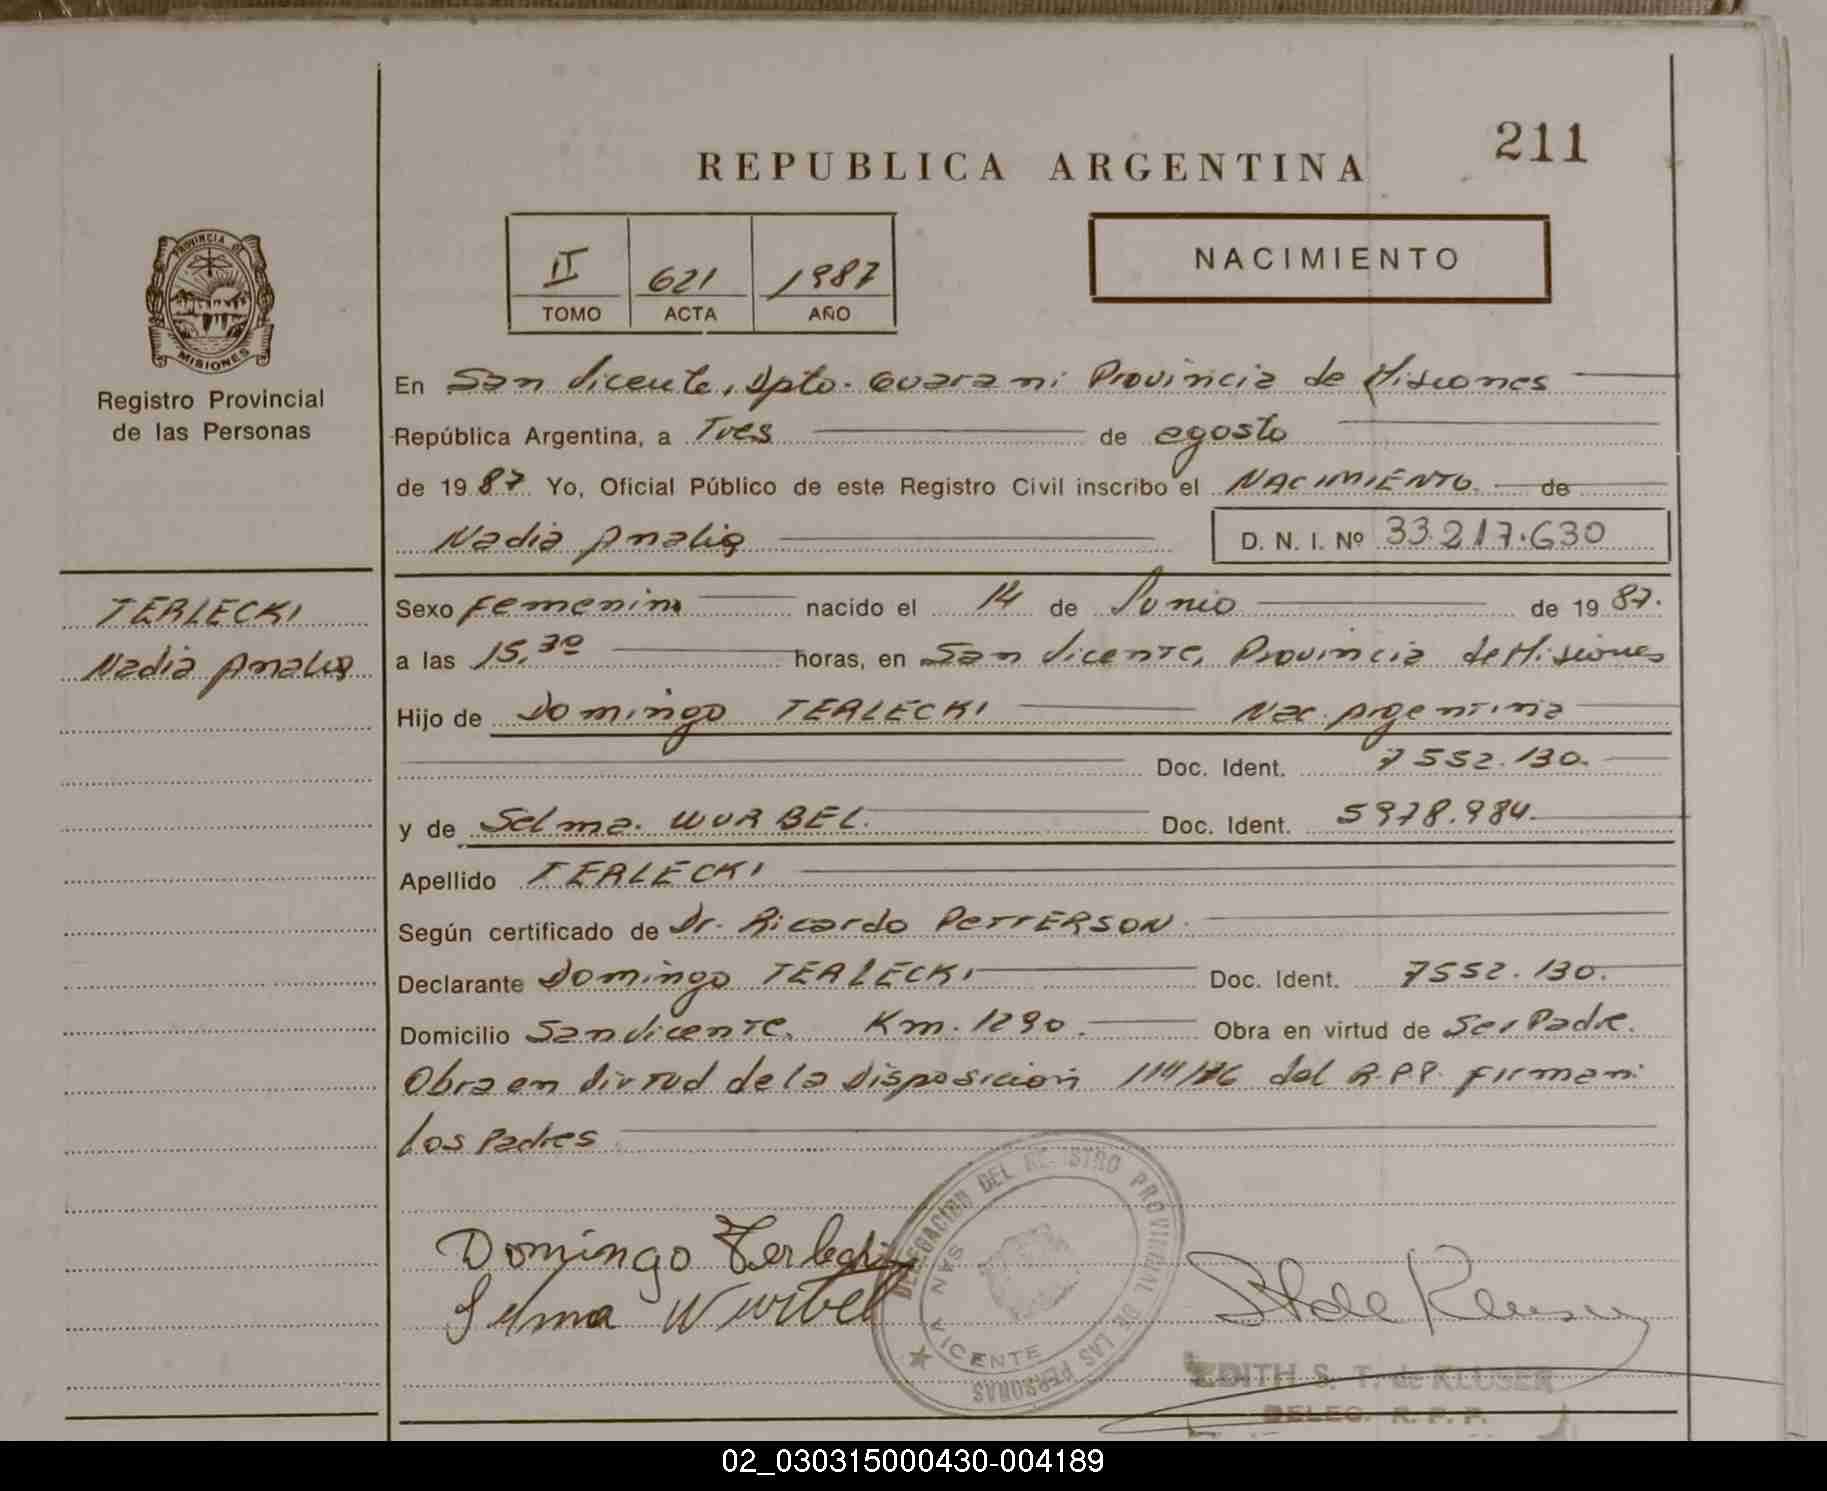 211
REPUBLICA ARGENTINA
II 621 1987
TOMO ACTA AÑO
NACIMIENTO
PROVINCIA DE
MISIONES
Registro Provincial
de las Personas
En San Vicente, Dpto. Guarani Provincia de Misiones
República Argentina, a Tres de agosto
de 1987 Yo, Oficial Público de este Registro Civil inscribo el NACIMIENTO de
Nadia Analia D. N. I. Nº 33.217.630
TERLECKI
Nadia Analia
Sexo femenino nacido el 14 de Junio de 1987.
a las 15,30 horas, en San Vicente, Provincia de Misiones
Hijo de Domingo TERLECKI Nac. Argentina
Doc. Ident. 7552.130.
y de Selma. WURBEL. Doc. Ident. 5978.984.
Apellido TERLECKI
Según certificado de Dr. Ricardo PETTERSON.
Declarante Domingo TERLECKI Doc. Ident. 7552.130.
Domicilio San Vicente. Km. 1290. Obra en virtud de Ser Padre.
Obra en Virtud de la Disposicion 114/76 del R.P.P. firman:
los Padres
Domingo Terlecki
Selma Wurbel
DELEGACION DEL REGISTRO PROVINCIAL DE LAS PERSONAS
SAN VICENTE
EDITH S. T. de KLUSER
DELEG. R. P. P.
02_030315000430-004189